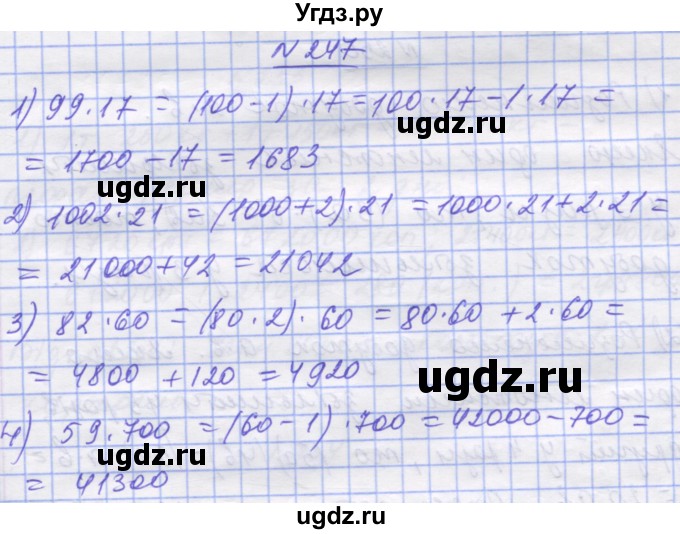 Угдз.ру
N 247
1) 99·17 = (100-1)·17=100·17-1·17=
= 1700-17 = 1683
ugdz.ru
ugdz.ru
2) 1002·21 = (1000+2)·21 =1000·21+2·21=
= 21000+42 =21042
3) 82·60 = (80·2)·60 = 80·60 +2·60=
= 4800 +120 =4920
ugdz.ru
4) 59·700 =(60-1)·700=42000-700=
ugdz.ru
= 41300
ugdz.ru